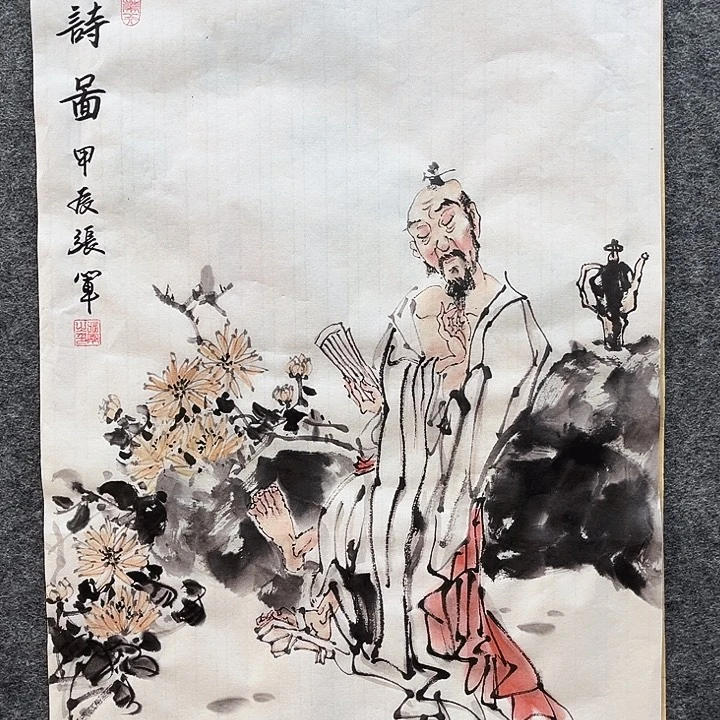 詩圖甲辰張軍